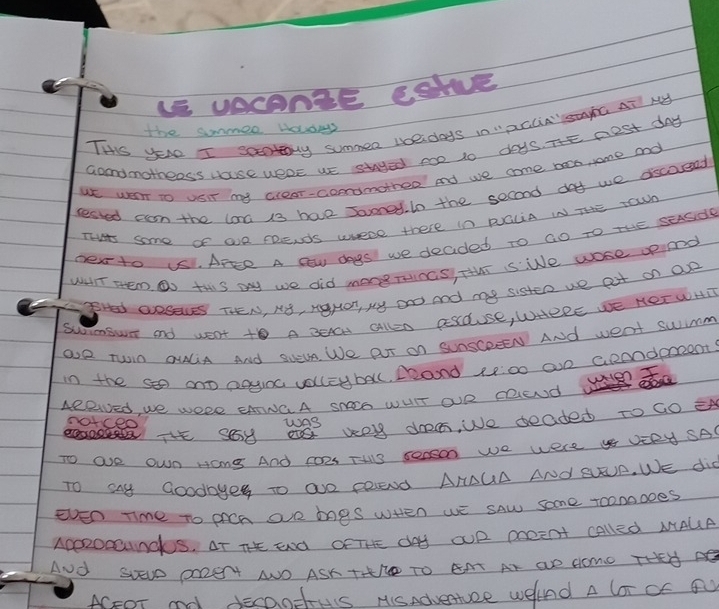 LE VACANZE ESTIVE
the summer Holidays
THIS YEAR I my summer Holidays in "PUGLIA" STAYNG AT MY
Grandmotheass House WERE WE stayed FOR 10 days. THE FIRST day
WE WENT TO VISIT my GREAT-GRANDMOTHER and we come back home and
rested from the long 13 hour Journey. In the second day we discovered
THAT some of our FRIENDS where there in PUGLIA IN THE TOWN
next to us. AFTER A few days we decided TO GO TO THE SEASIDE
WHIT THEM. ON THIS DAY we did many THINGS, THAT IS: We WOKE UP and
OURSELVES THEN, MY MOTHER, MY DAD and my sister we put on our
swimsuit and went to A BEACH CALLED , WHERE WE MET WHIT
our TWIN AMALIA AND SVEVA. We PUT ON SUNSCREEN AND went SWIMM
in the SEA and playing volleyball. Around our GRANDPARENTS
ARRIVED, we were EATING A snack WHIT OUR FRIEND when I
noticed THE SKY was very dark. We decided TO GO
TO OUR OWN HOME And FOR THIS reason we were VERY SAD
TO SAY Goodbyes TO OUR FRIEND AMALIA AND SVEVA. WE did
EVEN TIME TO pack our bags WHEN WE SAW some TORNADOES
APPROACHING US. AT THE END OF THE day OUR PARENT CALLED AMALIA
AND SVEVA parent AND ASK THEM TO EAT AT OUR HOME THEY
ACEPT and DESPITE THIS MISADVENTURE we find A LOT OF